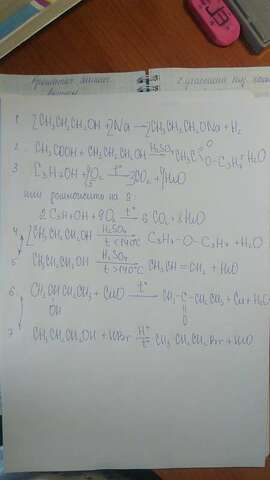 1. 2CH₃CH₂CH₂OH + 2Na → 2CH₃CH₂CH₂ONa + H₂
2. CH₃COOH + CH₃CH₂CH₂OH H₂SO₄ → CH₃C O O-C₃H₇ + H₂O
3 C₃H₇OH + O₂ t° → 3CO₂ + 4H₂O
или домножить на 2
2 C₃H₇OH + 9O₂ t° → 6 CO₂ + 8H₂O
4. 2CH₃CH₂CH₂OH H₂SO₄ → t<140°C C₃H₇-O-C₃H₇ + H₂O
5. CH₃CH₂CH₂OH H₂SO₄ → t>140°C CH₃CH=CH₂ + H₂O
6 CH₃CHCH₂CH₃ + CuO t° → CH₃-C-CH₂CH₃ + Cu + H₂O
OH O
7. CH₃CH₂CH₂OH + HBr H⁺ → t° CH₃CH₂CH₂Br + H₂O